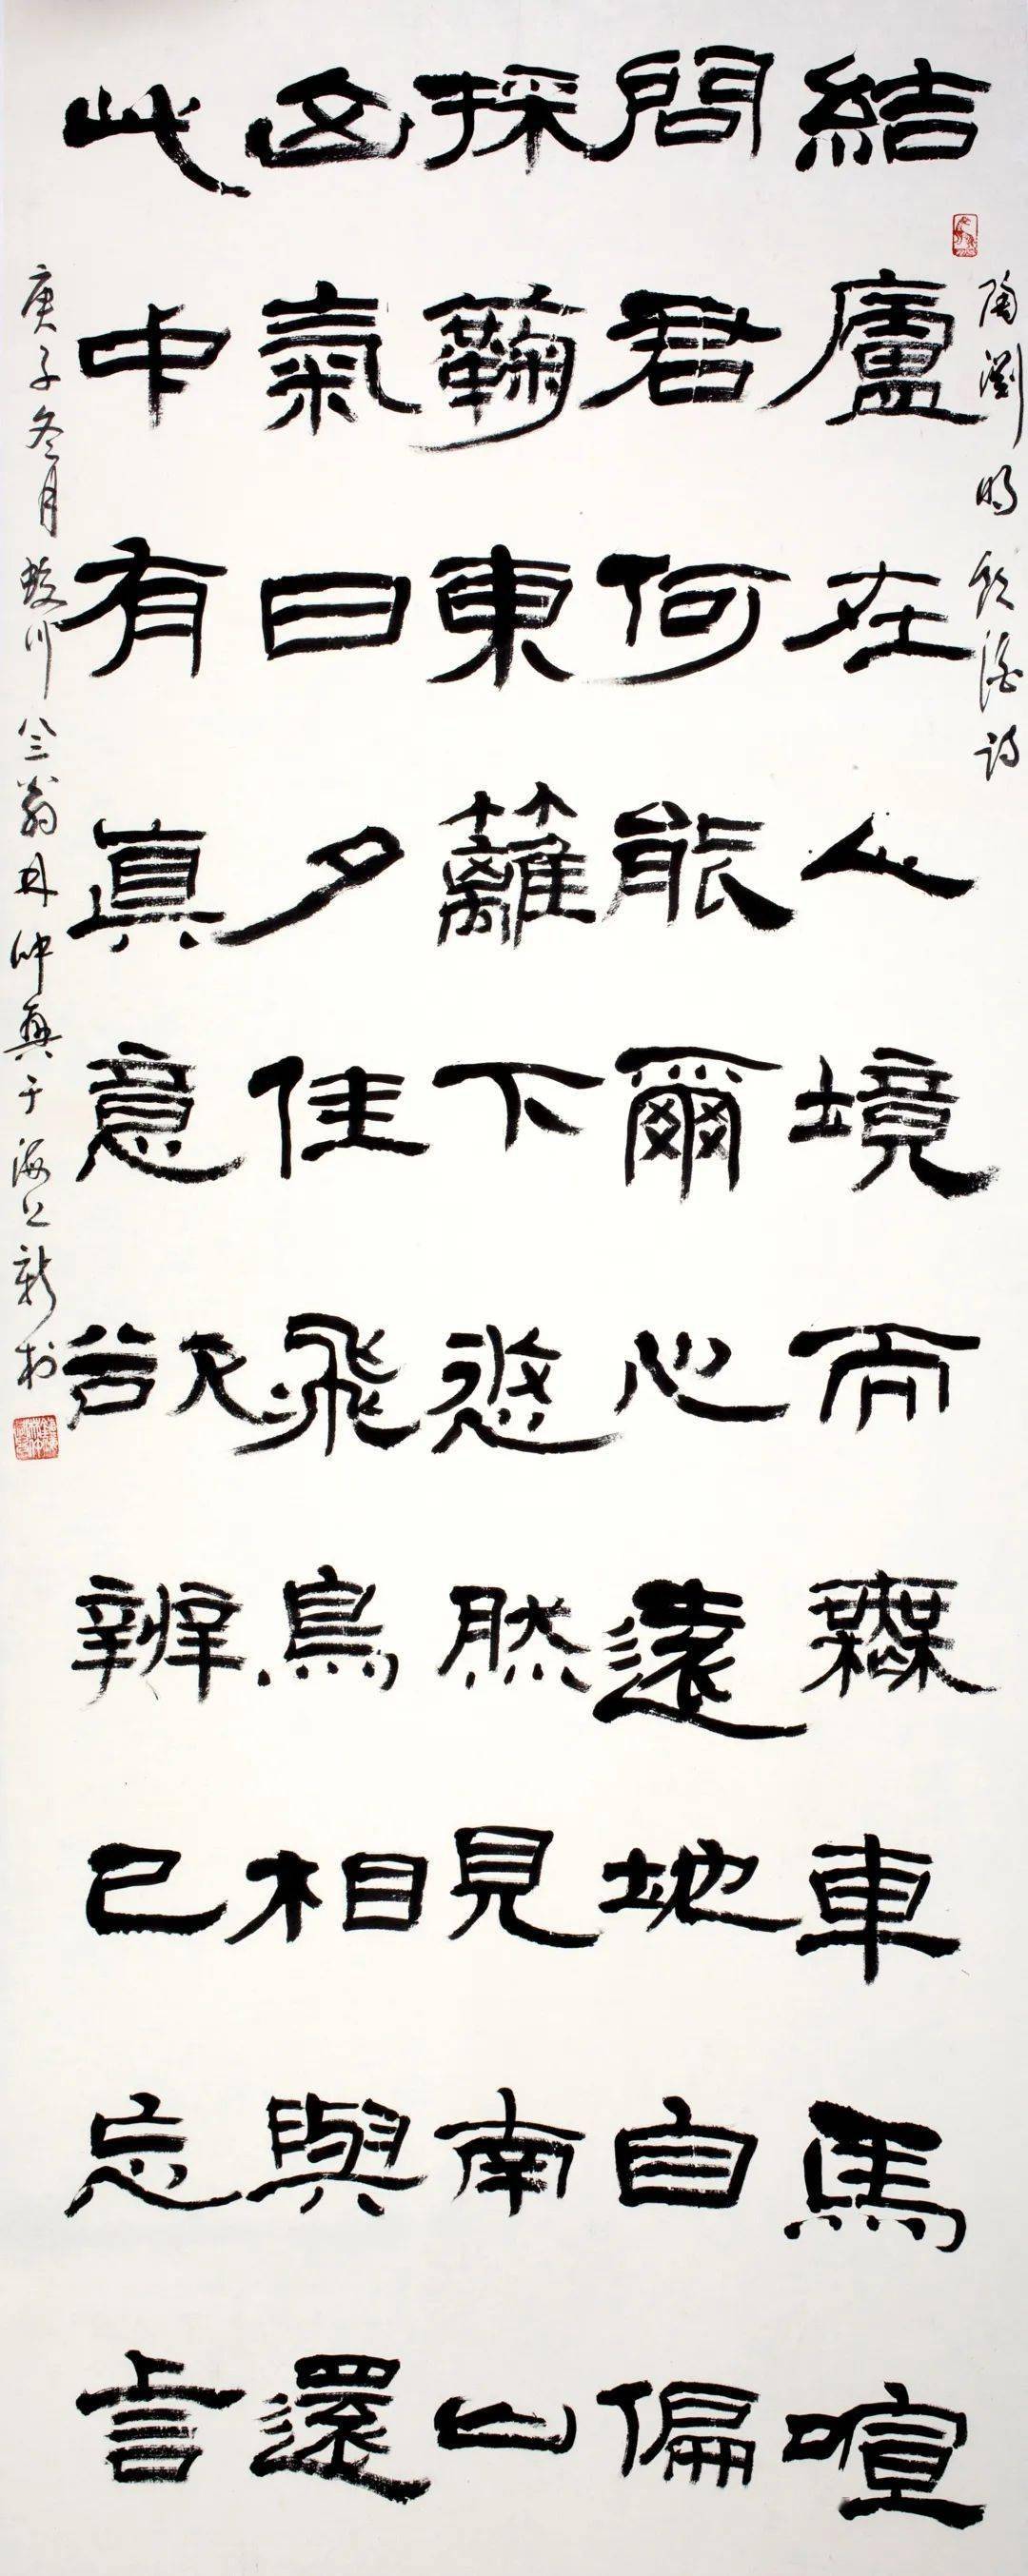 陶渊明飲酒诗
結廬在人境而無車馬喧
問君何能爾心遠地自偏
採菊東籬下悠然見南山
山氣日夕佳飛鳥相與還
此中有真意欲辨已忘言
庚子冬月蛟川八三翁林仲興于海上新村